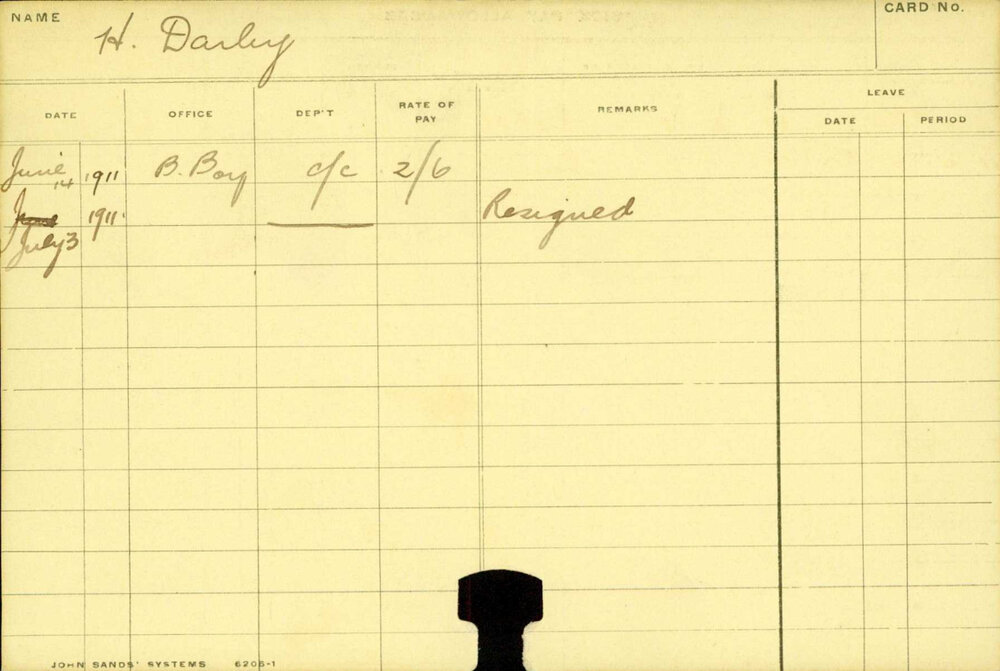 NAME H. Darley CARD No.
DATE OFFICE DEP'T RATE OF PAY REMARKS LEAVE
DATE PERIOD
June 14 1911 B. Boy c/c 2/6
June 1911 Resigned
July 3
JOHN SANDS' SYSTEMS 6206-1